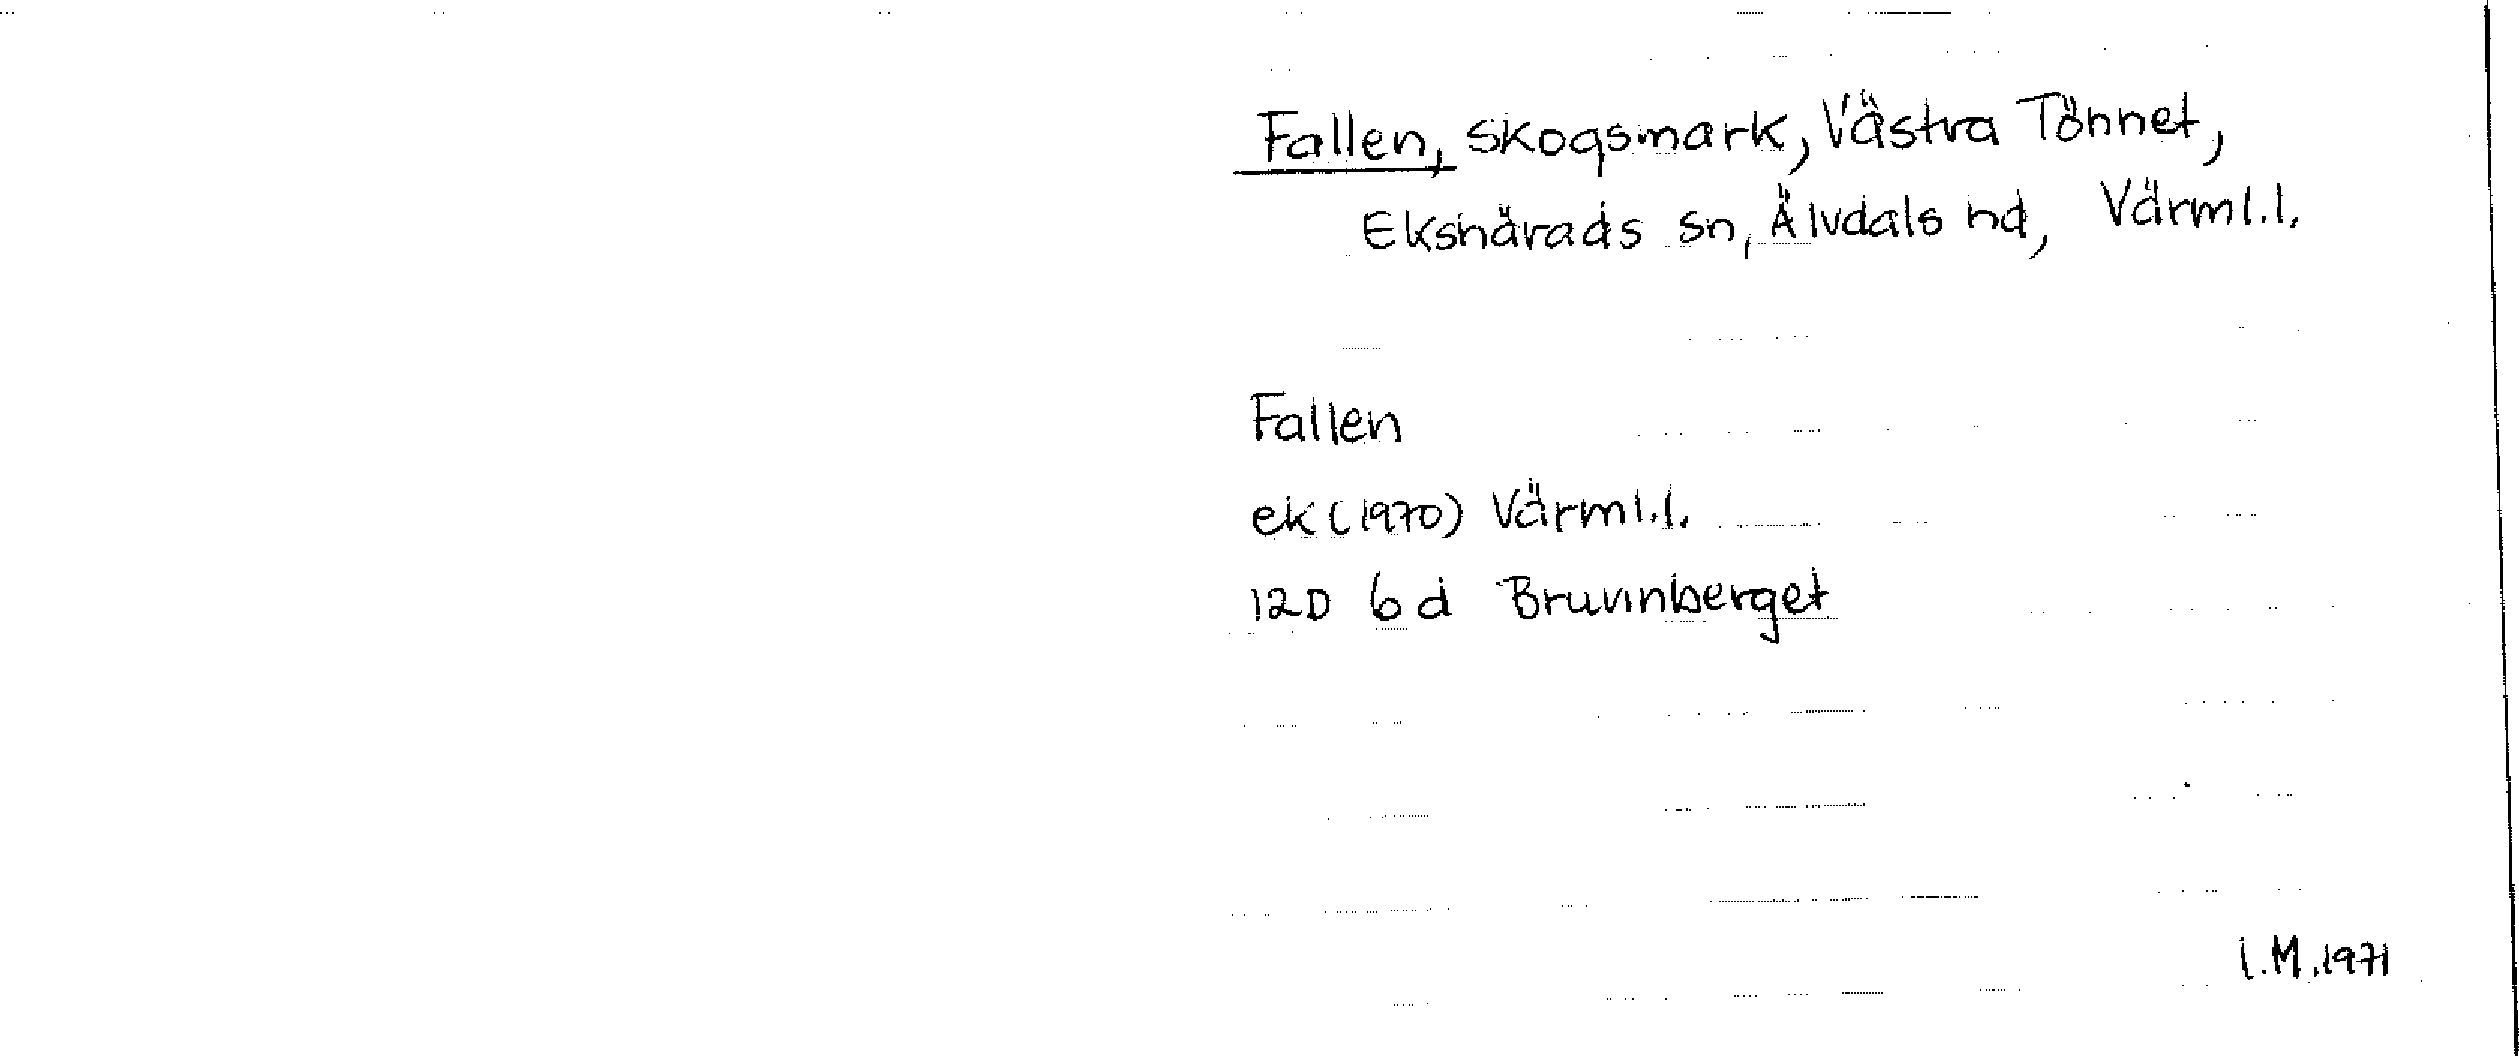 Fallen, skogsmark, Västra Tönnet,
Ekshärads sn, Älvdals hd, Värml.l.
Fallen
ek (1970) Värml.l.
12D 6d Bruvinberget
I.M.1971